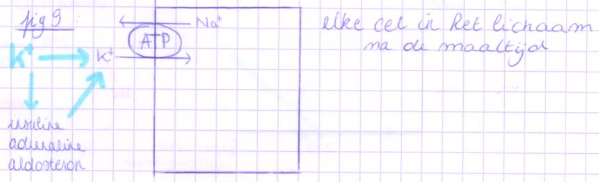 fig 9
Na+
ATP
K+
K+
insuline
adrenaline
aldosteron
elke cel in het lichaam
na de maaltijd